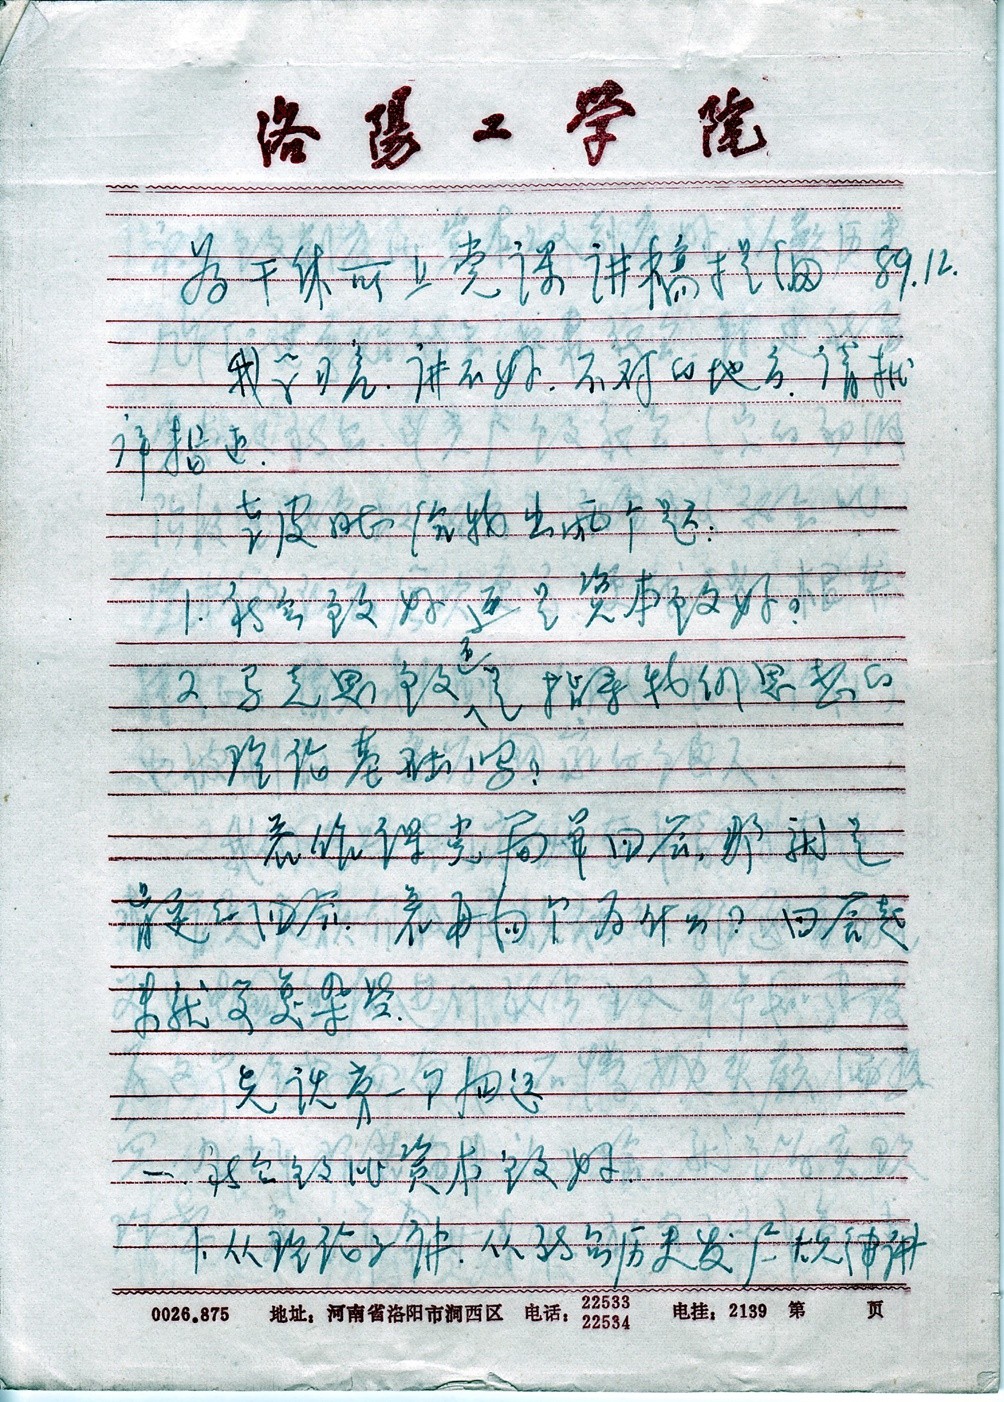 洛陽工学院
为干休所上党课讲稿提纲 89.12.
我学习差.讲不好.不对的地方.请批
评指正.
老皮 给我出两个题.
1.社会主义好还是资本主义好?
2.马克思主义还是指导我们思想的
理论基础吗?
若作课堂简单回答,那就是
肯定的回答.若再问个为什么?回答起
来就要复杂些.
先说第一个
一.社会主义比资本主义好.
1.从理论上讲.从社会历史发展规律讲
0026.875 地址：河南省洛阳市涧西区 电话：22533 22534 电挂：2139 第 页